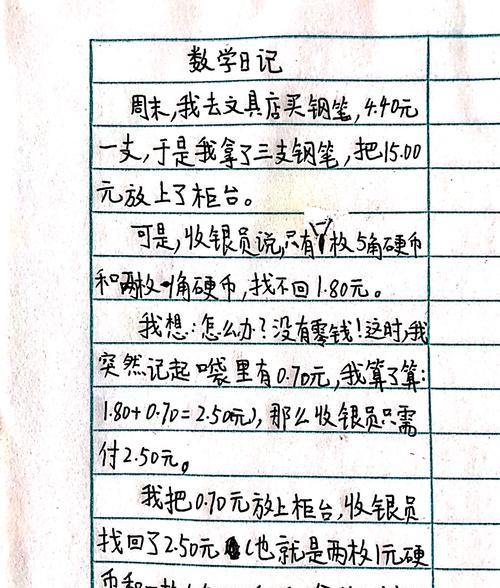 数学日记
周末,我去文具店买钢笔,4.40元
一支,于是我拿了三支钢笔,把15.00
元放上了柜台。
可是,收银员说,只有 枚5角硬币
和两枚一角硬币,找不回1.80元。
我想:怎么办?没有零钱!这时,我
突然记起口袋里有0.70元,我算了算:
1.80+0.70=2.50(元),那么收银员只需
付2.50元。
我把0.70元放上柜台,收银员
找回了2.50元(也就是两枚1元硬
币和一枚